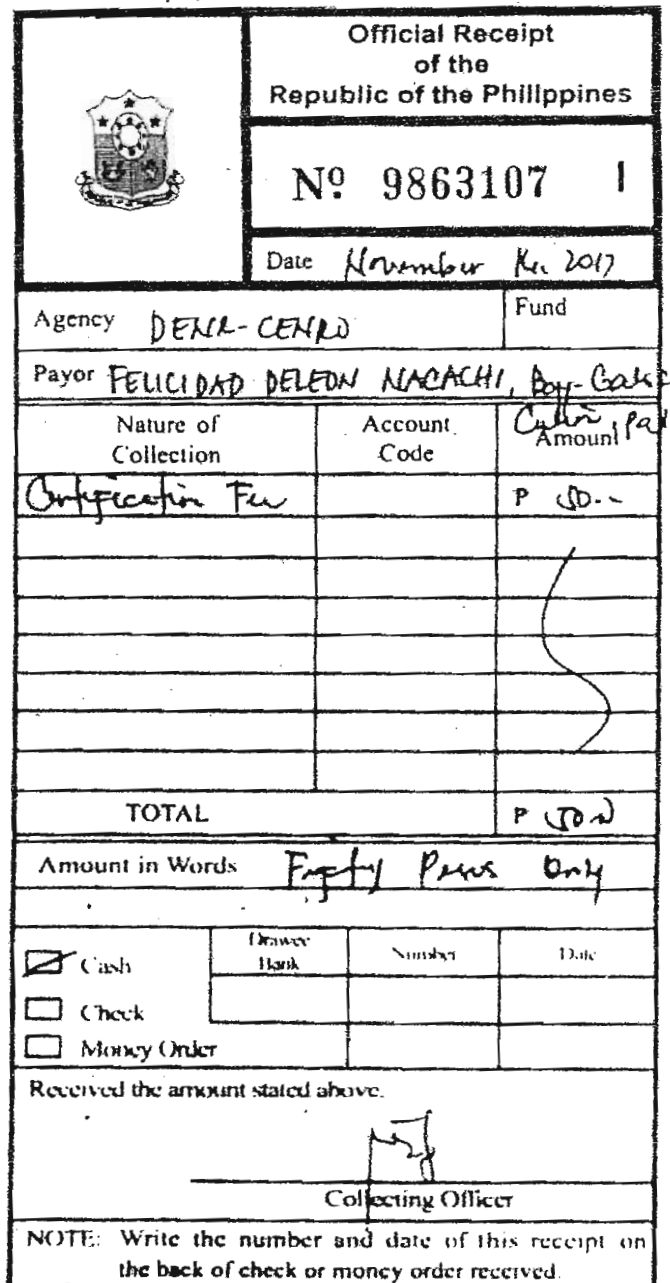 Official Receipt
of the
Republic of the Philippines
Nº 9863107 1
Date November 2017
Agency DENR-CENRO
Fund
Payor FELICIDAD DELEON MACACHI, Bgy.
Culion, Pal
Nature of Collection
Account Code
Amount
Certification Fee
P 50.--
TOTAL
P 50.--
Amount in Words Fifty Pesos Only
Cash
Check
Money Order
Drawee Bank
Number
Date
Received the amount stated above.
Collecting Officer
NOTE: Write the number and date of this receipt on
the back of check or money order received.